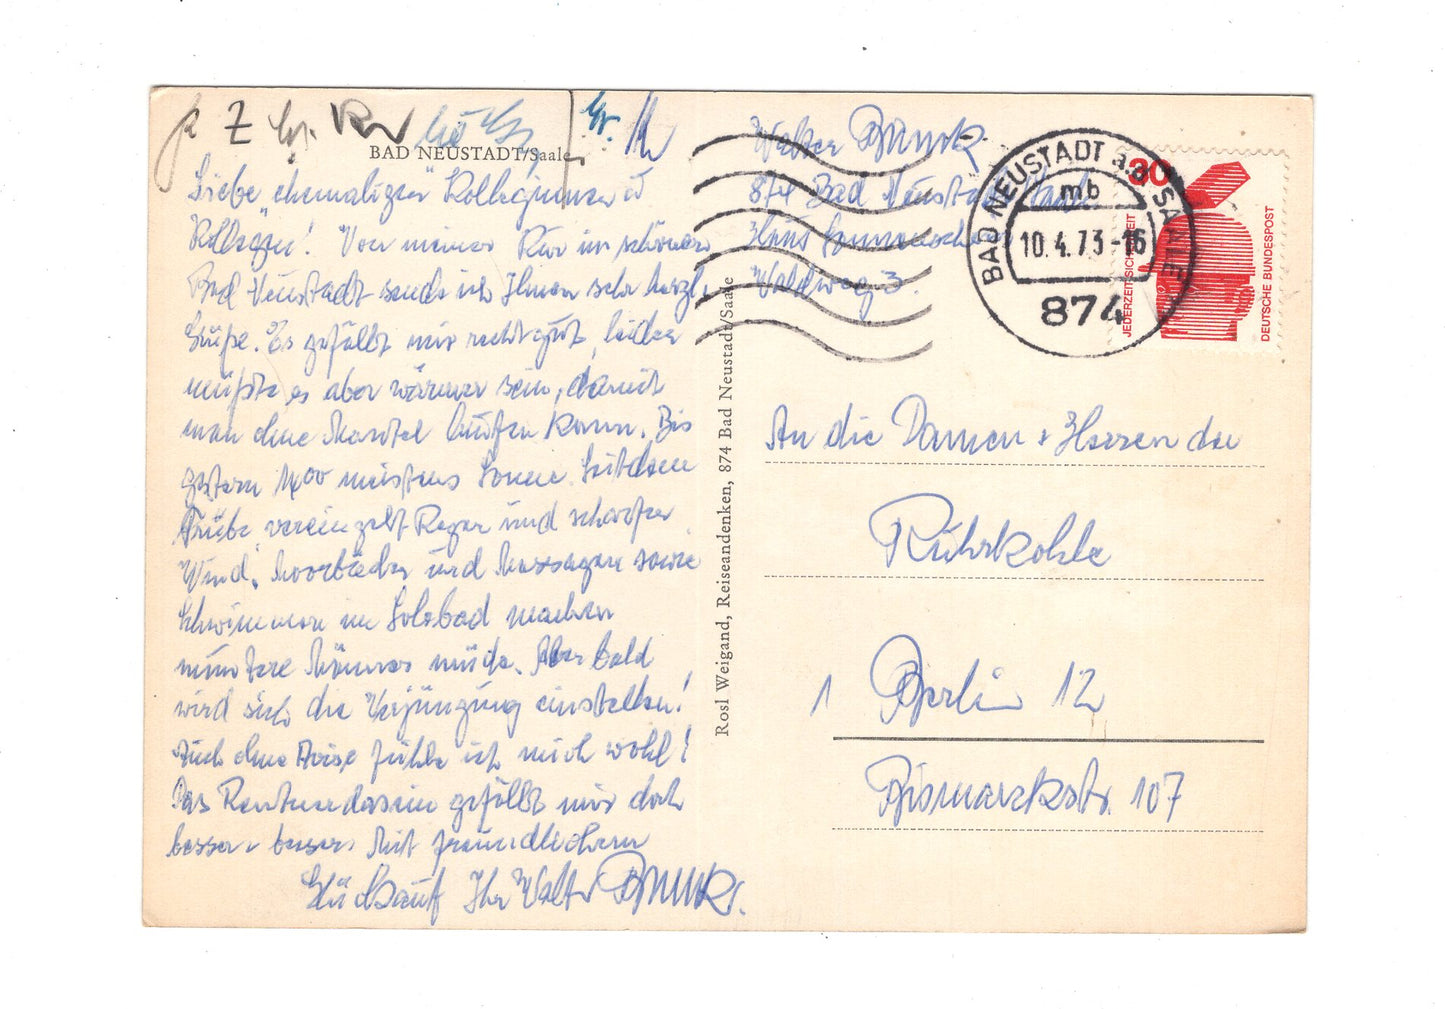 Z
BAD NEUSTADT/Saale
Liebe ehemaligen Kolleginnen u
Kollegen! Von meiner Kur im schönen
Bad Neustadt sende ich Ihnen sehr herzl.
Grüße. Es gefällt mir recht gut, leider
müßte es aber wärmer sein, damit
man ohne Mantel laufen kann. Bis
gestern 1400 meistens Sonne. Seitdem
trübe vereinzelt Regen und scharfer
Wind. Moorbäder und Massagen sowie
Schwimmen im Solebad machen
muntere Männer müde. Aber bald
wird sich die Verjüngung einstellen!
Auch ohne fühle ich mich wohl!
Das Rentnerdasein gefällt mir doch
besser. Mit freundlichem
Glückauf Ihr Walter
Rosl Weigand, Reiseandenken, 874 Bad Neustadt/Saale
Walter
874 Bad Neustadt Saale
Haus Sonnenschein
Waldweg 3.
BAD NEUSTADT a.d. SAALE
mb
10.4.73-16
874
30
JEDERZEIT SICHERHEIT
DEUTSCHE BUNDESPOST
An die Damen + Herren der
Ruhrkohle
1 Berlin 12
Bismarckstr. 107